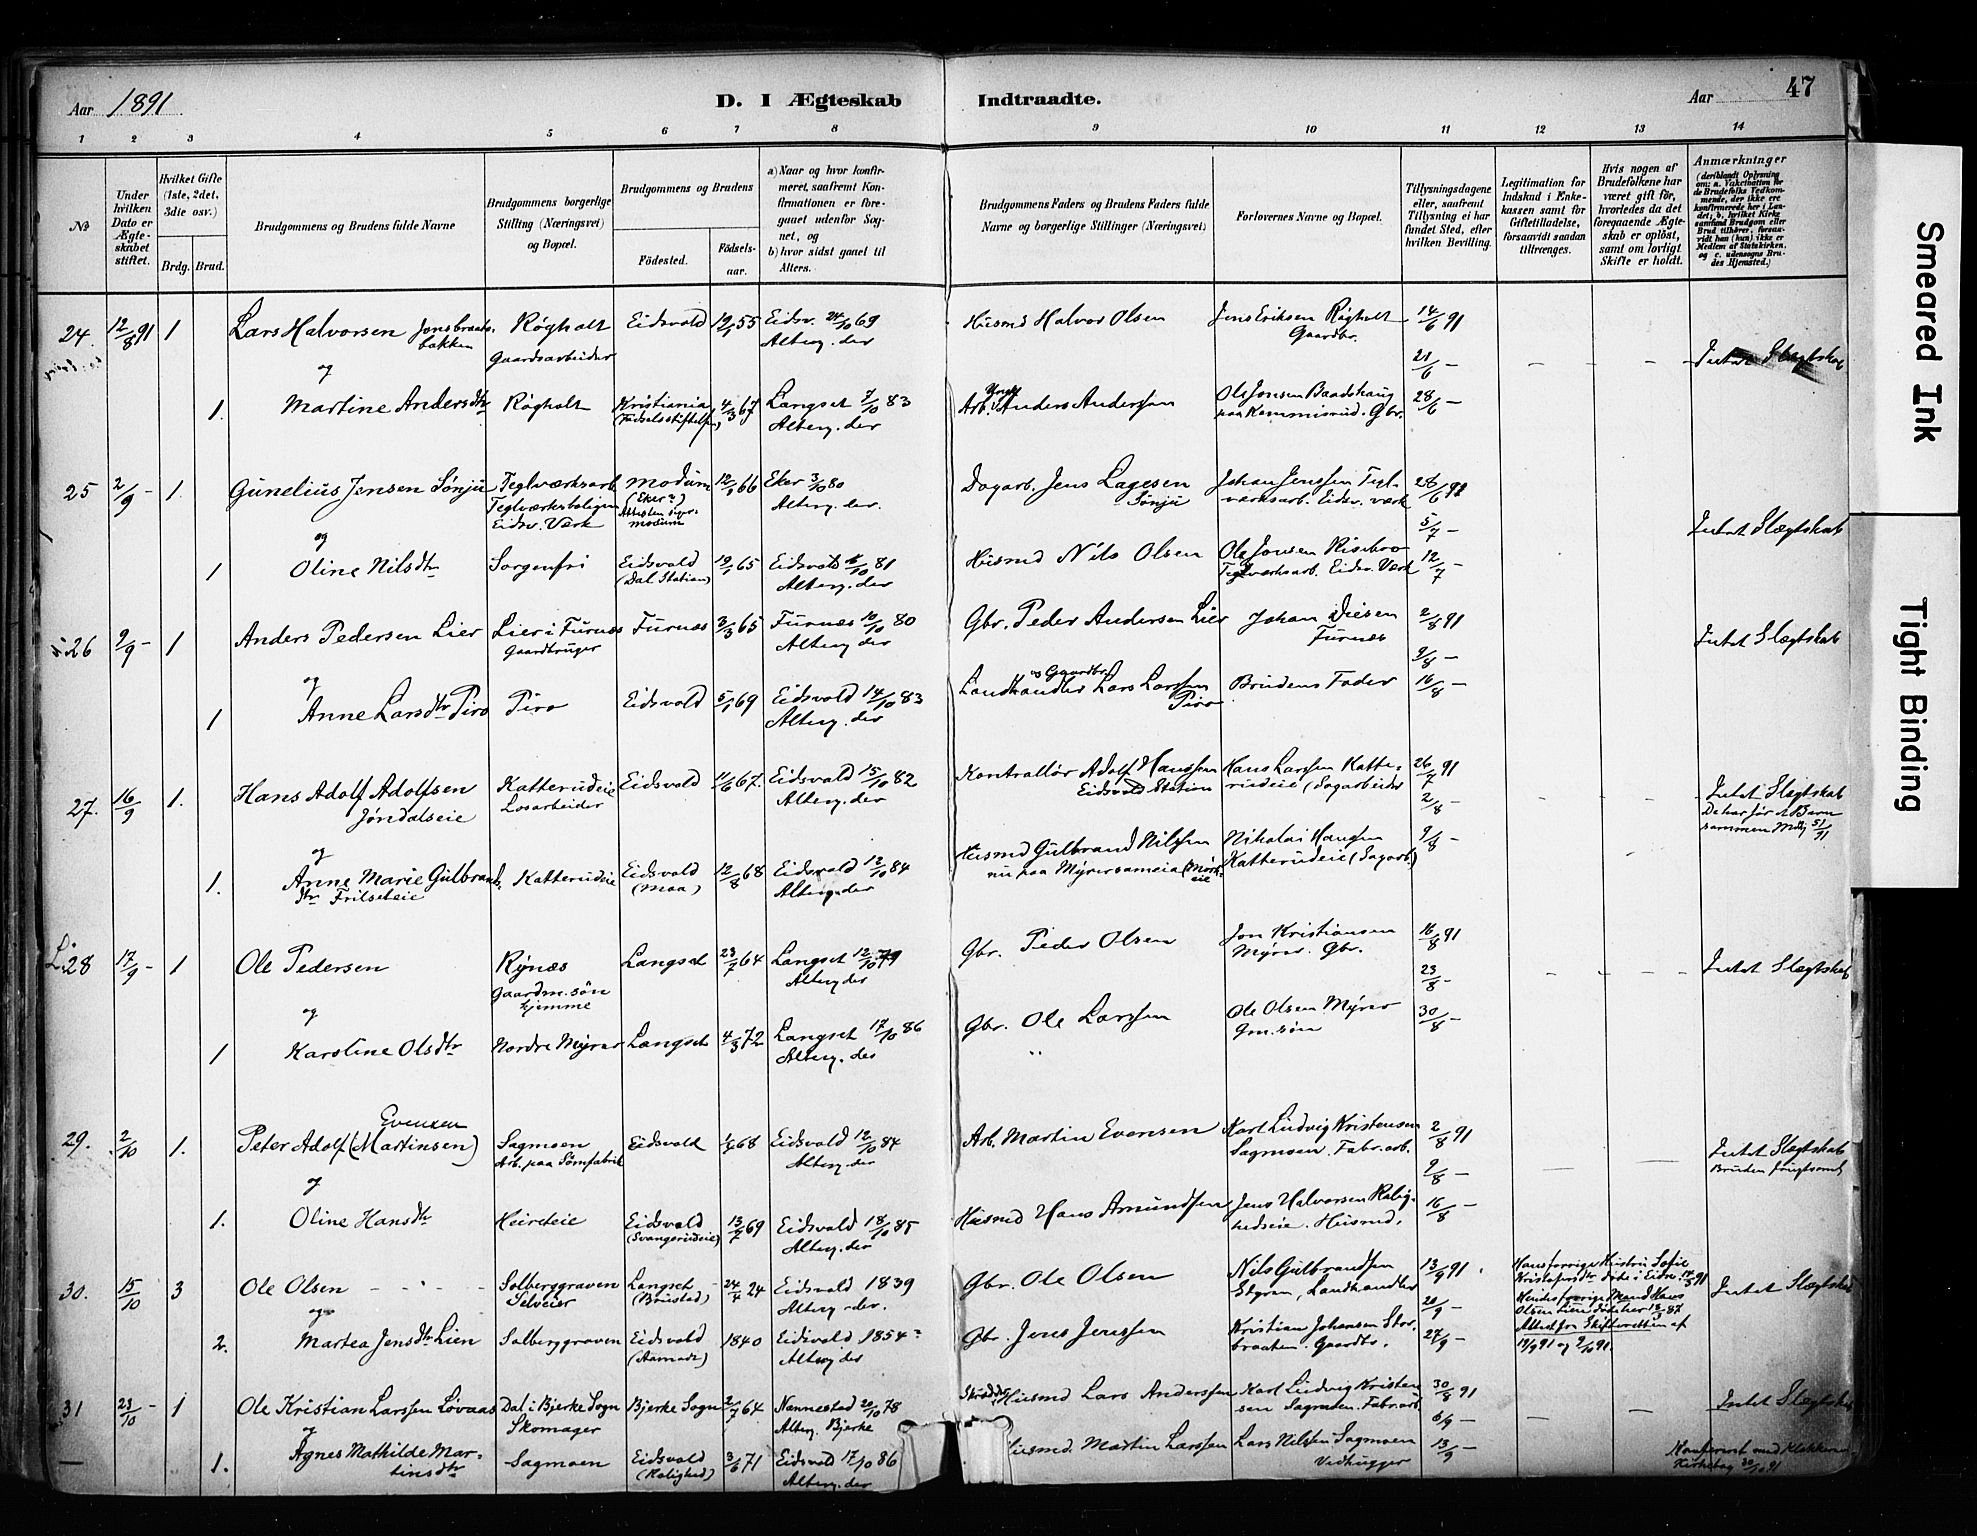 Aar 1891
D. I Ægteskab
Indtraadte.
Aar
47
1 2 3 4 5 6 7 8 9 10 11 12 13 14
№
Under hvilken Dato er Ægteskabet stiftet.
Hvilket Gifte (1ste, 2det, 3die osv.)
Brdg. Brud.
Brudgommens og Brudens fulde Navne
Brudgommens borgerlige Stilling (Næringsvei) og Bopæl.
Brudgommens og Brudens
Födested.
Födselsaar.
a) Naar og hvor konfirmeret, saafremt Konfirmationen er foregaaet udenfor Sognet, og
b) hvor sidst gaaet til Alters.
Brudgommens Faders og Brudens Faders fulde Navne og borgerlige Stillinger (Næringsvei)
Forlovernes Navne og Bopæl.
Tillysningsdagene eller, saafremt Tillysning ei har fundet Sted, efter hvilken Bevilling.
Legitimation for Indskud i Enkekassen samt for Giftetilladelse, forsaavidt saadan tiltrænges.
Hvis nogen af Brudefolkene har været gift før, hvorledes da det foregaaende Ægteskab er oplöst, samt om lovligt Skifte er holdt.
Anmærkninger (deriblandt Oplysning om: a. Vakcination for de Brudefolks Vedkommende, der ikke ere konfirmerede her i Landet, b. hvilket Kirkesamfund Brudgom eller Brud tilhörer, forsaavidt han (hun) ikke er Medlem af Statskirken, og c. udensogns Brudes Hjemsted.)
24. 12/8 91 1 Lars Halvorsen Jønsbraatebakken Røgholt Gaardsarbeider Eidsvold 19/1 55 Eidsv. 24/10 69 Alterg. der Husmd Halvor Olsen Jens Eriksen Røgholt Gaardbr. 14/6 91
21/6 – Intet Slægtskab
og
1. Martine Andersdtr Røgholt Kristiania (Fødselsstiftelsen) 4/3 67 Langset 7/10 83 Alterg. der Arb. Anders Andersen Ole Jonsen Baadshaug paa Kommisrud. Gbr. 28/6 –
25 2/9 – 1. Gunelius Jensen Sønju Teglværksarb. Teglværksboligen Eidsv. Værk Modum (Eker?) 12/1 66 Eker 3/10 80 Alterg. der. Dagarb. Jens Lagesen Sønju Johan Jenssen Teglværksarb. Eidsv. værk 28/6 91
5/7 – Intet Slægtskab
og
1 Oline Nilsdtr Sorgenfri Eidsvold (Dal Station) 19/1 65 Eidsvold 81 Alterg. der Husmd Nils Olsen Ole Jonsen Risebro Teglværksarb. Eidsv. Værk 12/7 –
26 9/9 – 1 Anders Pedersen Lier Lier i Furnes Gaardbruger Furnæs 3/3 65 Furnæs 10/10 80 Alterg. der Gbr. Peder Andersen Lier Johan Diesen Furnes 2/8 91
9/8 – Intet Slægtskab
og
1 Anne Larsdtr Piro Piro Eidsvold 5/1 69 Eidsvold 14/10 83 Alterg. der Landhandler og Gaardbr. Lars Larssen Piro Brudens Fader 16/8 –
27. 16/9 1. Hans Adolf Adolfsen Jøndalseie Katterudeie Løsarbeider Eidsvold 11/6 67. Eidsvold 15/10 82 Alterg. der Kontrollør Adolf Hanssen Eidsvold Station Hans Larssen Katterudeie (Sagarbeider 26/7 91
2/8 – Intet Slægtskab De har før et Barn sammen
og
1. Anne Marie Gulbrandsdtr Frilseteie Katterudeie Eidsvold (Maa) 12/8 68 Eidsvold 12/10 84 Alterg. der Husmd Gulbrand Nilssen Nikolai Hansen Katterudeie (Sagarb.) 9/8 –
28 17/9 – 1 Ole Pedersen Rynæs Gaardm.søn hjemme Langset 23/7 64 Langset 12/10 79 Alterg der Gbr. Peder Olsen Jon Kristiansen Myrer. Gbr. 16/8 91
23/8 – Intet Slægtskab
og
1 Karoline Olsdtr Nordre Myrer Langset 4/3 72 Langset 17/10 86 Alterg. der Gbr. Ole Larssen Ole Olsen Myrer Gm. søn 30/8 –
29. 2/10 1. Peter Adolf (Martinsen) Evensen Sagmoen Arb. paa Sømfabrik Eidsvold 68 Eidsvold 12/10 84 Alterg. der Arb. Martin Evensen Karl Ludvig Kristensen Sagmoen. Fabr.arb. 2/8 91
9/8 – Intet Slægtskab Bruden frugtsoml.
og
1. Oline Hansdtr Heireteie Eidsvold (Svangerudeie) 13/7 69 Eidsvold 18/10 85 Alterg. der Husmd Hans Amundsen Jens Halvorsen Rolighedseie. Husmd. 16/8 –
30. 15/10 3 Ole Olsen Solberggraven Selveier Langset (Brustad) 24/4 24 Eidsvold 1839 Alterg. der. Gbr. Ole Olsen Nils Gulbrandsen Styren, Landhandler 13/9 91. Hans forrige Hustru Sofie Kristofersdtr døde i Eidsv. Intet Slægtskab
og 20/9 – Hendes forrige Mand Hans Olsen Lien døde her 87
2. Martea Jensdtr Lien Solberggraven Eidsvold 1840 Eidsvold 1854? Alterg der Gbr. Jens Jenssen Kristian Johansen Storbraaten. Gaardbr. 27/9 – Attest fra Skifteretten af 12/9 91 og 2/10 91.
31 23/10 – 1 Ole Kristian Larssen Løvaas Dal i Bjerke Sogn Skomager Bjerke Sogn 2/7 64 Nannestad 20/10 78 Alterg. Bjerke Husmd Lars Anderssen Karl Ludvig Kristensen Sagmoen. Fabr.arb. 30/8 91 Intet Slægtskab
og 6/9 –
1. Agnes Mathilde Martinsdtr Sagmoen Eidsvold (Rolighed) 3/6 71 Eidsvold 17/10 86 Alterg. der Husmd. Martin Larssen Lars Nilsen Sagmoen Vedhugger 13/9 – Konfereret med Klokkerens Kirkebog 30/10 91
Smeared Ink
Tight Binding